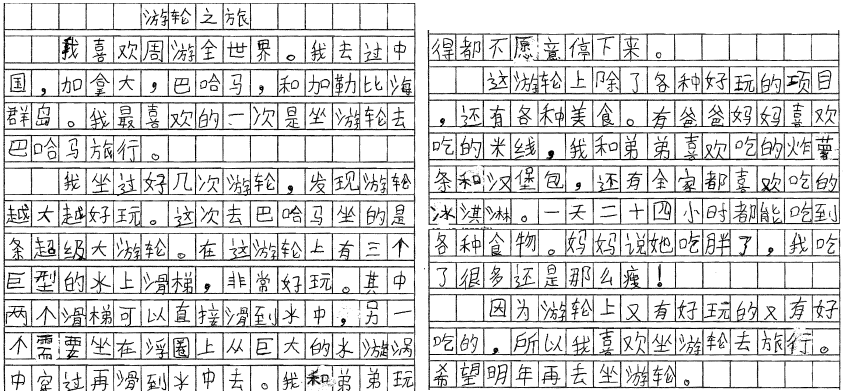 游轮之旅
我喜欢周游全世界。我去过中
国，加拿大，巴哈马，和加勒比海
群岛。我最喜欢的一次是坐游轮去
巴哈马旅行。
我坐过好几次游轮，发现游轮
越大越好玩。这次去巴哈马坐的是
条超级大游轮。在这游轮上有三个
巨型的水上滑梯，非常好玩。其中
两个滑梯可以直接滑到水中，另一
个需要坐在浮圈上从巨大的水漩涡
中穿过再滑到水中去。我和弟弟玩
得都不愿意停下来。
这游轮上除了各种好玩的项目
，还有各种美食。有爸爸妈妈喜欢
吃的米线，我和弟弟喜欢吃的炸薯
条和汉堡包，还有全家都喜欢吃的
冰淇淋。一天二十四小时都能吃到
各种食物。妈妈说她吃胖了，我吃
了很多还是那么瘦！
因为游轮上又有好玩的又有好
吃的，所以我喜欢坐游轮去旅行。
希望明年再去坐游轮。